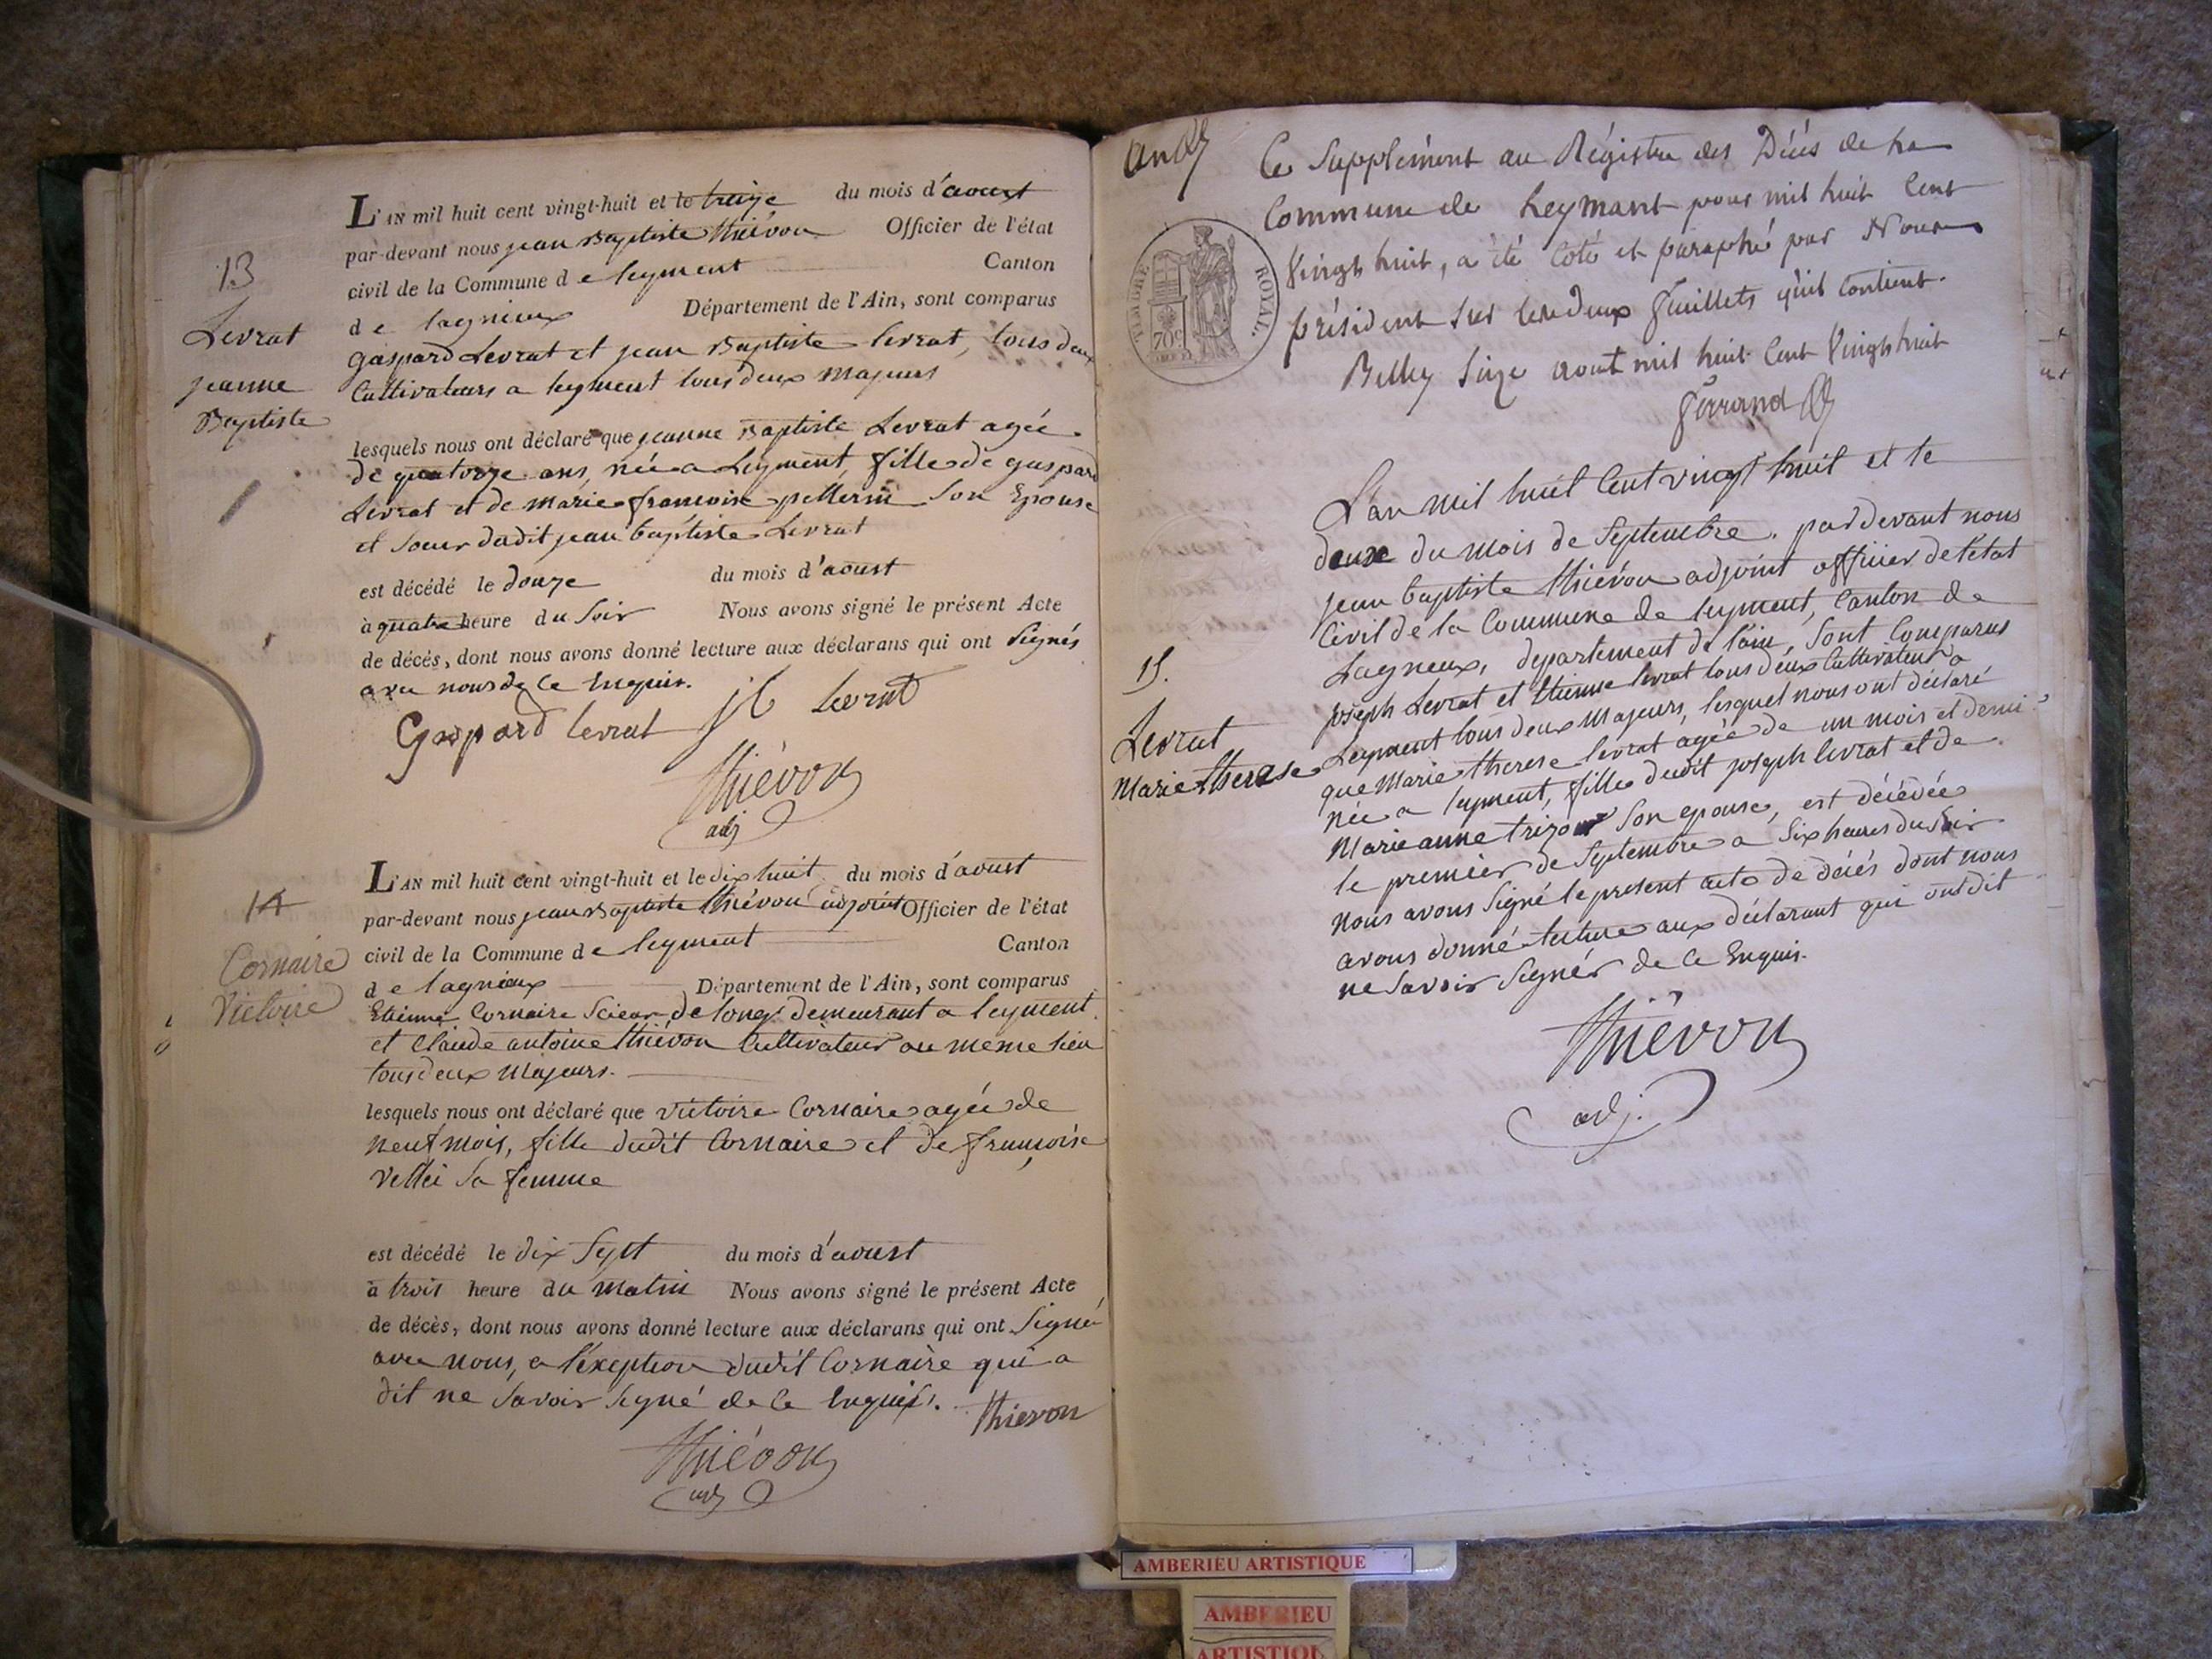 13
Levrat
jeanne
Baptiste
L'AN mil huit cent vingt-huit et le treize du mois d'aoust
par-devant nous jean Baptiste thiévon Officier de l'état
civil de la Commune de leyment Canton
de lagnieux Département de l'Ain, sont comparus
gaspard Levrat et jean Baptiste levrat, tous deux
Cultivateurs a leyment tous deux majeurs
lesquels nous ont déclaré que jeanne Baptiste Levrat agée
de quatorze ans, née a Leyment, fille de gaspard
Levrat et de marie francoise pellerin Son Epouse
et Soeur dudit jean baptiste Levrat
est décédé le douze du mois d'aoust
à quatre heure du Soir Nous avons signé le présent Acte
de décès, dont nous avons donné lecture aux déclarans qui ont Signés
avec nous de Ce Enquis.
Gaspard levrat jb Levrat
Thiévon
adj
14
Cornaire
Victoire
L'AN mil huit cent vingt-huit et le dix huit du mois d'aoust
par-devant nous jean Baptiste thiévon adjoint Officier de l'état
civil de la Commune de leyment Canton
de lagnieux Département de l'Ain, sont comparus
Etienne Cornaire Scieur de long demeurant a leyment
et Claude antoine thiévon Cultivateur au meme lieu
tous deux Majeurs.
lesquels nous ont déclaré que victoire Cornaire agée de
neuf mois, fille dudit Cornaire et de francoise
Sa femme
est décédé le dix Sept du mois d'aoust
à trois heure du matin Nous avons signé le présent Acte
de décès, dont nous avons donné lecture aux déclarans qui ont Signé
avec nous, a l'exeption dudit Cornaire qui a
dit ne Savoir Signé de Ce Enquis.
thievon
Thiévon
adj
Ce Supplément au Régistre des Décés de la
Commune de Leymant pour mil huit Cent
Vingt huit, a été Coté et paraphé par Nous
président Sur les deux feuillets qu'il Contient.
Belley Seize aout mil huit Cent Vingt huit
ferrand
TIMBRE ROYAL.
70c
15.
Levrat
Marie therese
L'an mil huit Cent vingt huit et le
deux du mois de Septembre. par devant nous
jean baptiste thiévon adjoint officier de l'état
Civil de la Commune de leyment, Canton de
Lagneux, departement de l'ain, Sont Comparus
joseph Levrat et Etienne levrat tous deux Cultivateur a
Leyment tous deux Majeurs, lesquel nous ont déclaré
que Marie therese levrat agée de un mois et demi
née a leyment, fille dudit joseph levrat et de
Marie anne Son epouse, est décédée
le premier de Septembre a Six heures du Soir
nous avons Signé le present acte de décés dont nous
avons donné lecture aux déclarant qui ont dit
ne Savoir Signér de Ce Enquis.
Thiévon
adj.
AMBERIEU ARTISTIQUE
AMBERIEU
ARTISTIQU